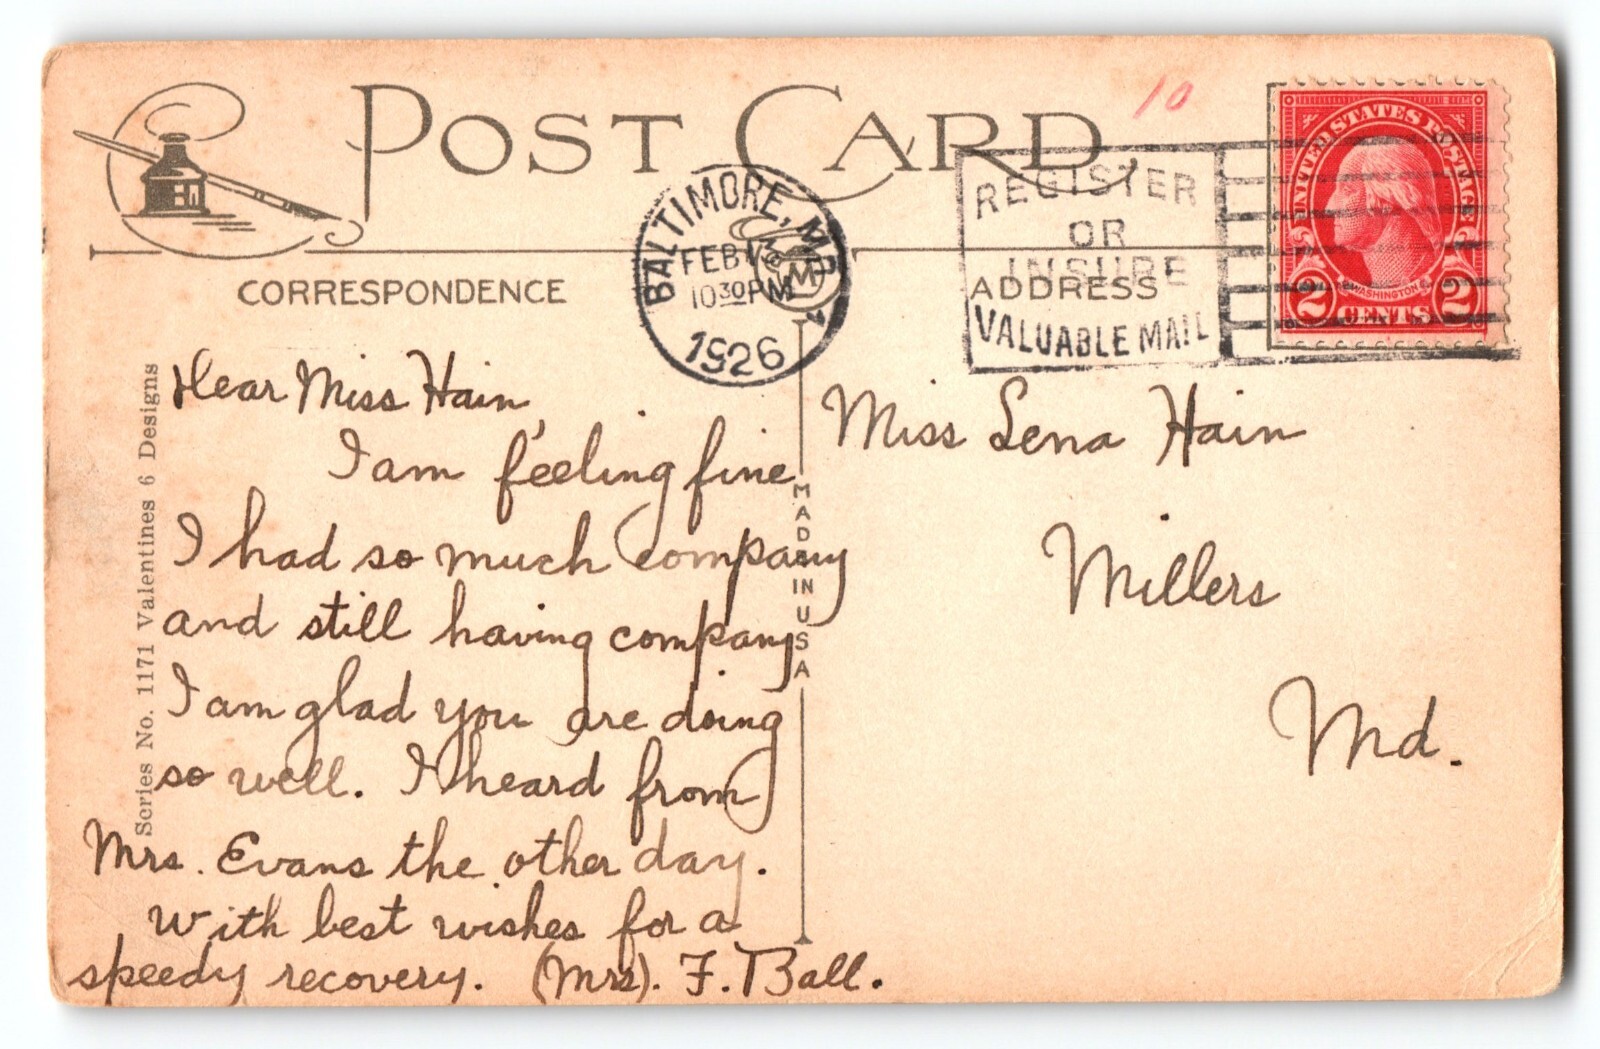 POST CARD
10
UNITED STATES POSTAGE
WASHINGTON
2 CENTS 2
BALTIMORE, MD.
FEB 13
10 30 PM
1926
REGISTER
OR
INSURE
VALUABLE MAIL
CORRESPONDENCE
ADDRESS
Series No. 1171 Valentines 6 Designs
MADE IN U S A
Dear Miss Hain,
I am feeling fine
I had so much company
and still having company
I am glad you are doing
so well. I heard from
Mrs. Evans the other day.
With best wishes for a
speedy recovery. (Mrs). F. Ball.
Miss Lena Hain
Millers
Md.